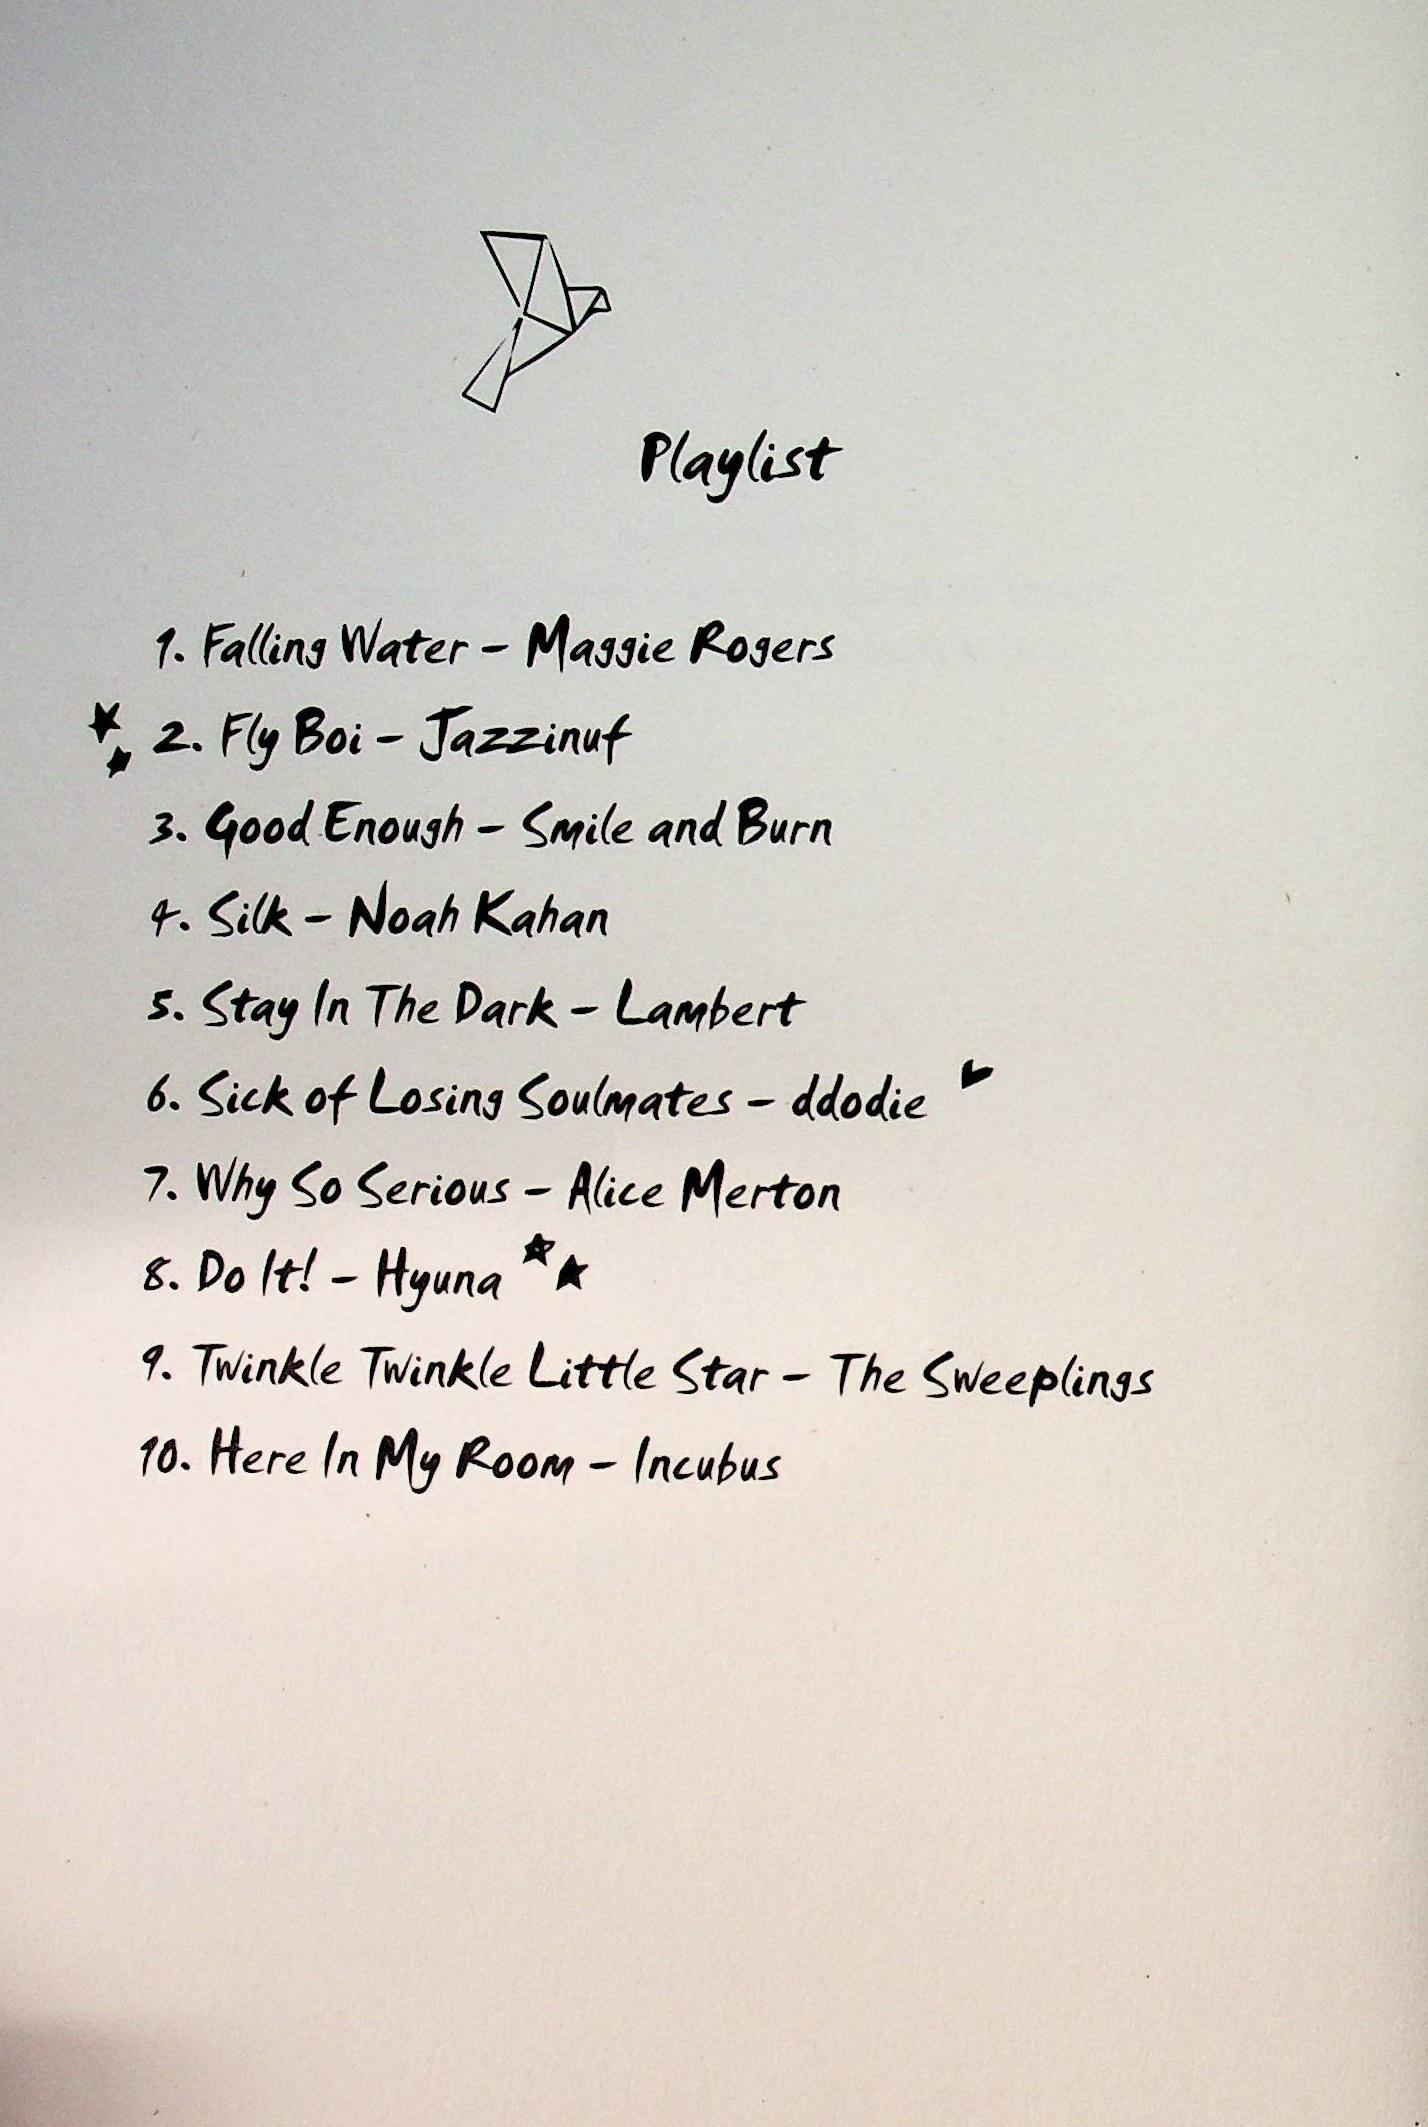 Playlist
1. Falling Water – Maggie Rogers
2. Fly Boi – Jazzinuf
3. Good Enough – Smile and Burn
4. Silk – Noah Kahan
5. Stay In The Dark – Lambert
6. Sick of Losing Soulmates – ddodie
7. Why So Serious – Alice Merton
8. Do It! – Hyuna
9. Twinkle Twinkle Little Star – The Sweeplings
10. Here In My Room – Incubus